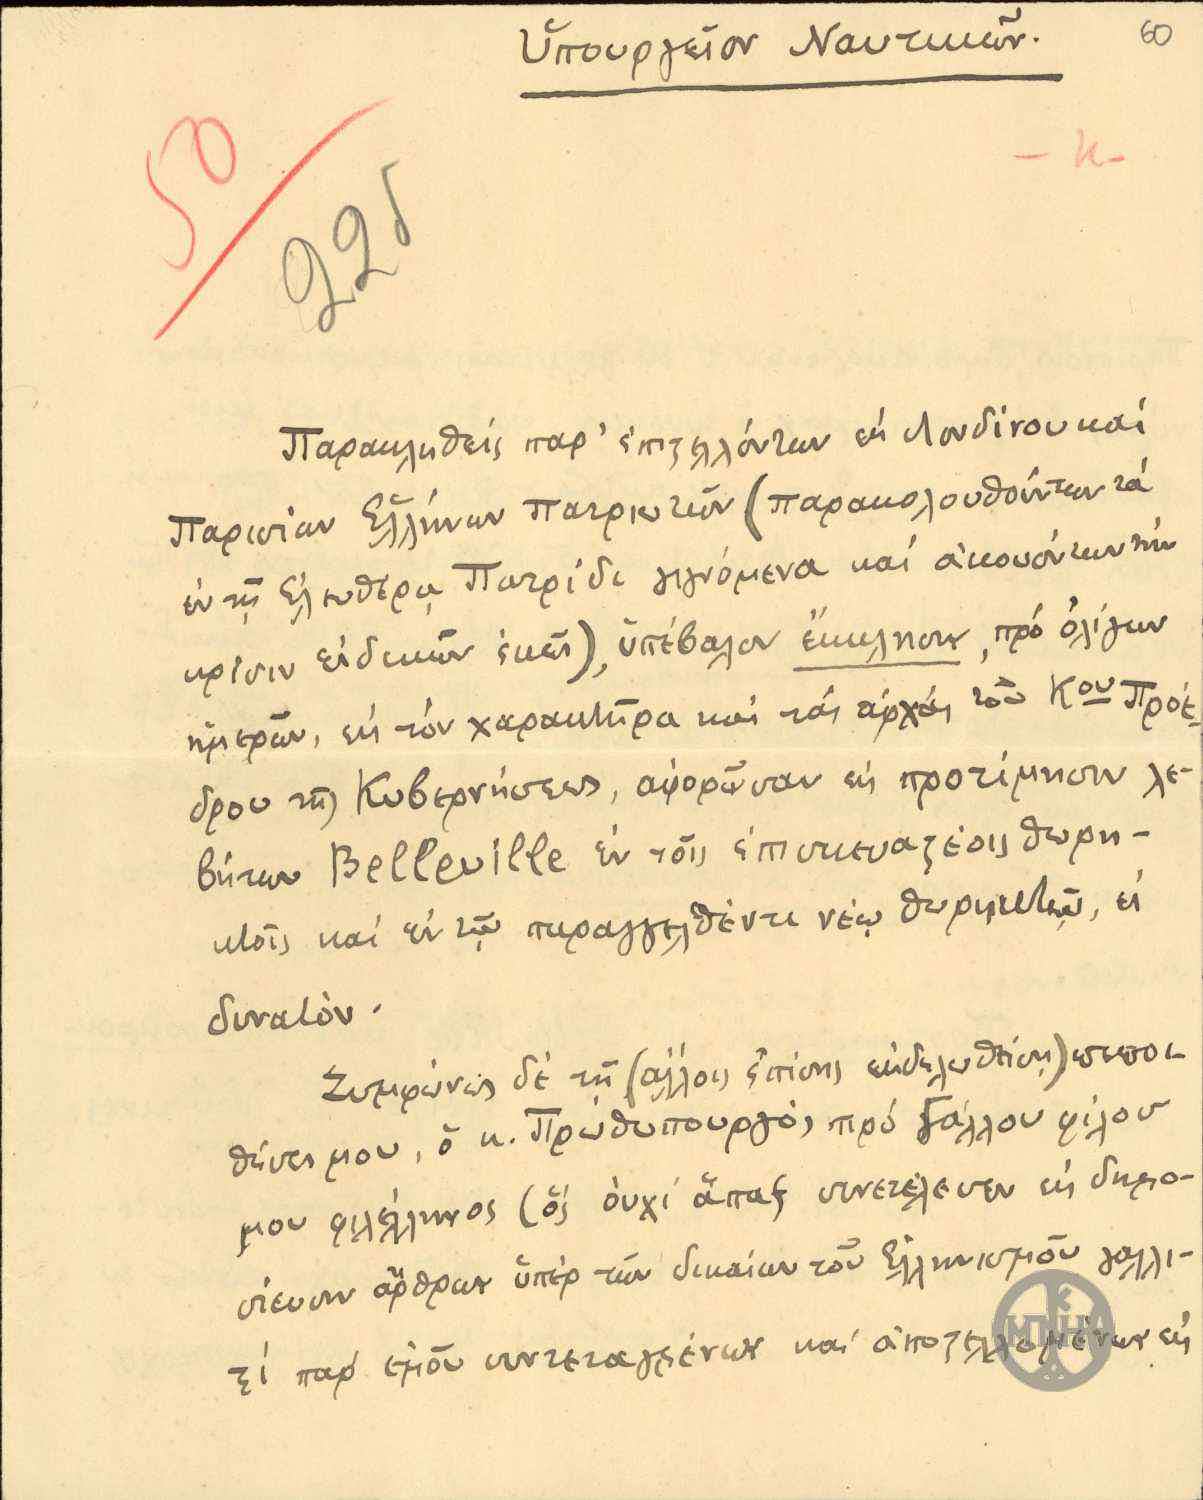 Ὑπουργεῖον Ναυτικῶν.
60
50
-κ-
225
Παρακληθείς παρ' ἐπιστελλόντων ἐκ Λονδίνου καί
Παρισίων Ἑλλήνων Πατριωτῶν (παρακολουθούντων τά
ἐν τῇ Ἐλευθέρᾳ Πατρίδι γιγνόμενα καί ἀκουόντων τήν
κρίσιν εἰδικῶν ἐκεῖ), ὑπέβαλον ἔκκλησιν, πρό ὀλίγων
ἡμερῶν, εἰς τόν χαρακτῆρα καί τάς ἀρχάς τοῦ Κου Προέ-
δρου τῆς Κυβερνήσεως, ἀφορῶσαν εἰς προτίμησιν λε-
βήτων Belleville ἐν τοῖς ἐπισκευαστέοις θωρη-
κτοῖς καί ἐν τῷ παραγγελθέντι νέῳ θωρηκτῷ, εἰ
δυνατόν.
Συμφώνως δέ τῇ (ἄλλοις ἐπίσης ἐκδηλωθείσῃ) πεποι-
θήσει μου, ὁ κ. Πρωθυπουργός πρό Γάλλου φίλου
μου φιλέλληνος (ὅς οὐχί ἅπαξ συνετέλεσεν εἰς δημο-
σίευσιν ἄρθρων ὑπέρ τῶν δικαίων τοῦ Ἑλληνισμοῦ γαλλι-
στί παρ' ἐμοῦ συντεταγμένων καί ἀποστελλομένων εἰς
ΜΠΗΚ